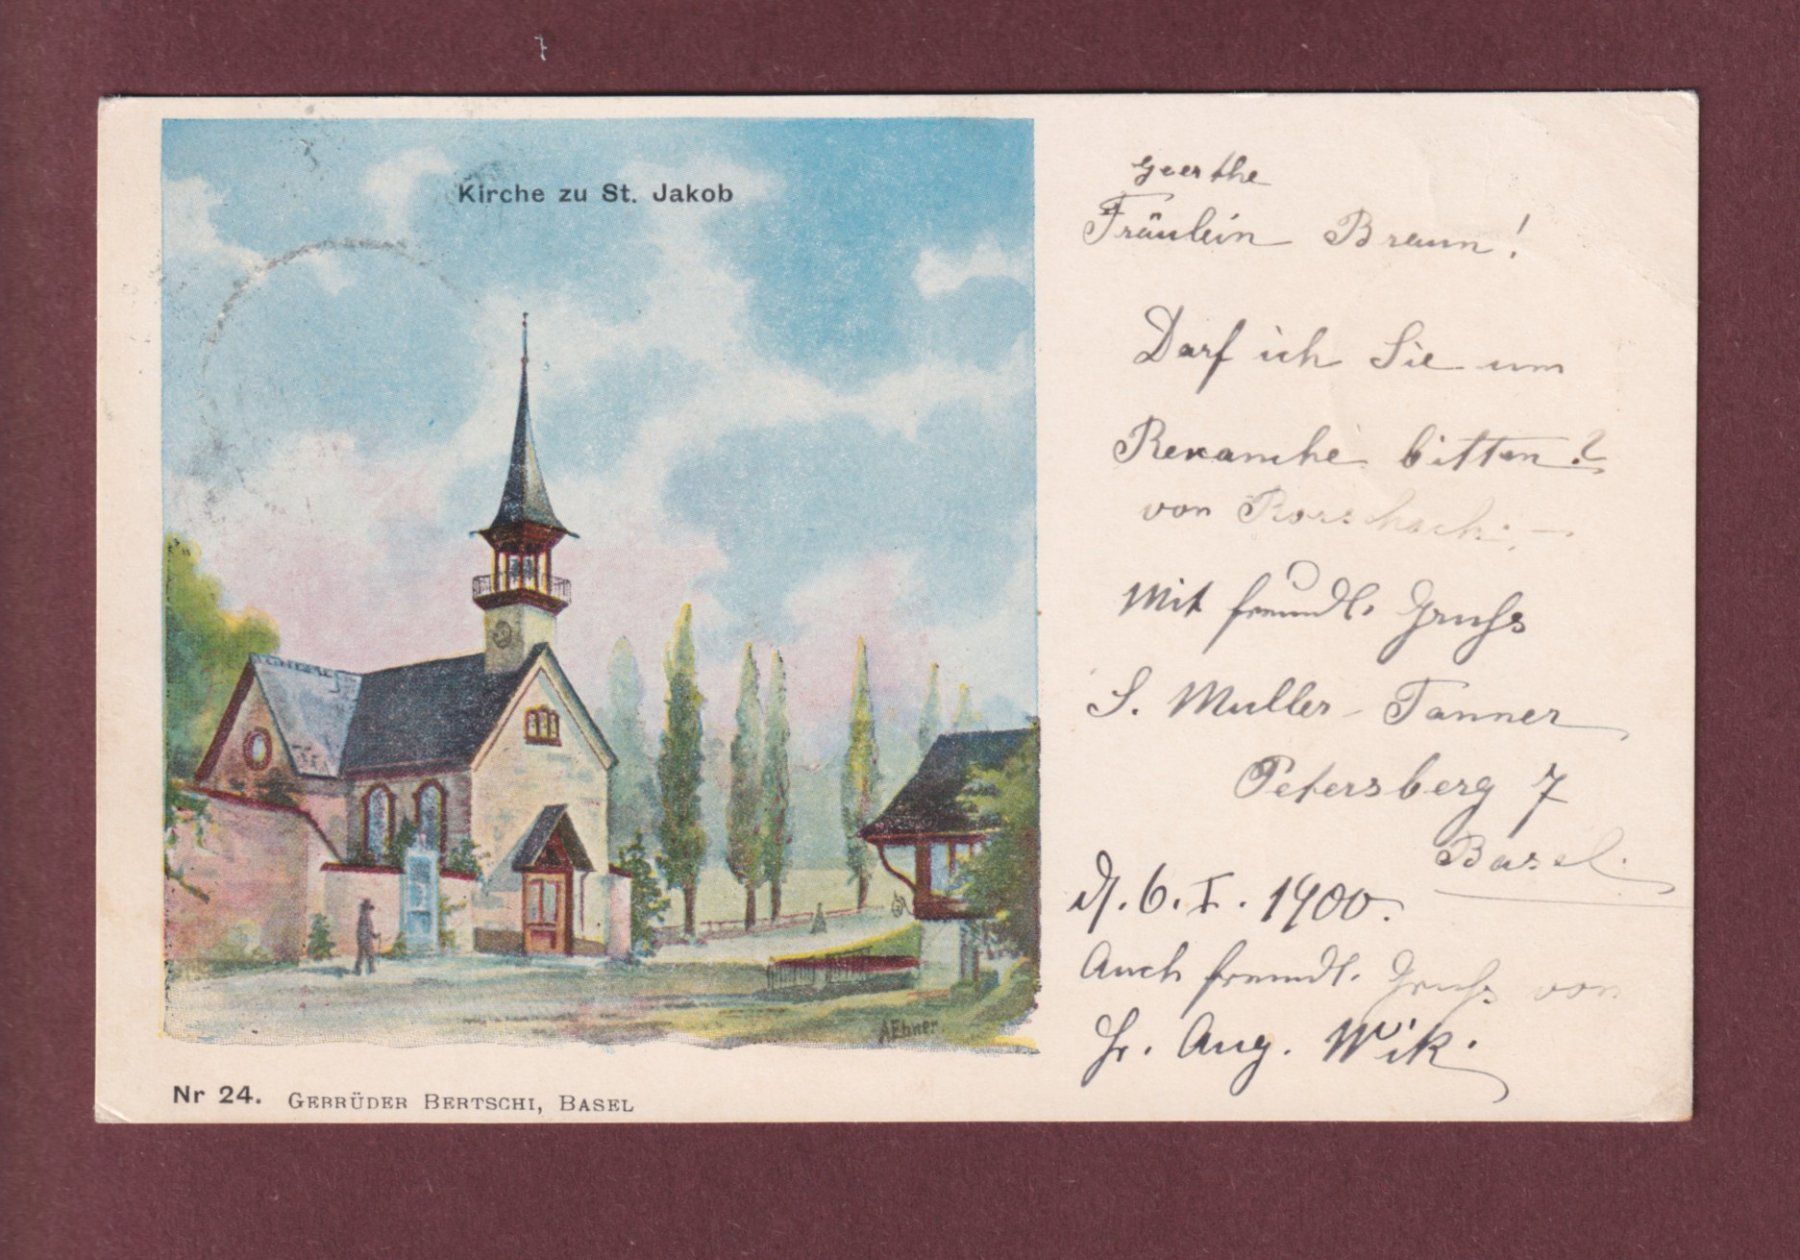 Kirche zu St. Jakob
AEbner
Nr 24. GEBRÜDER BERTSCHI, BASEL
Geerthe
Fräulein Braun!
Darf ich Sie um
Revanche bitten?
von Rorschach. —
Mit freundl. Gruß
S. Muller-Tanner
Petersberg 7
Basel.
d. 6. I. 1900.
Auch freundl. Gruß von
Fr. Aug. Wik.